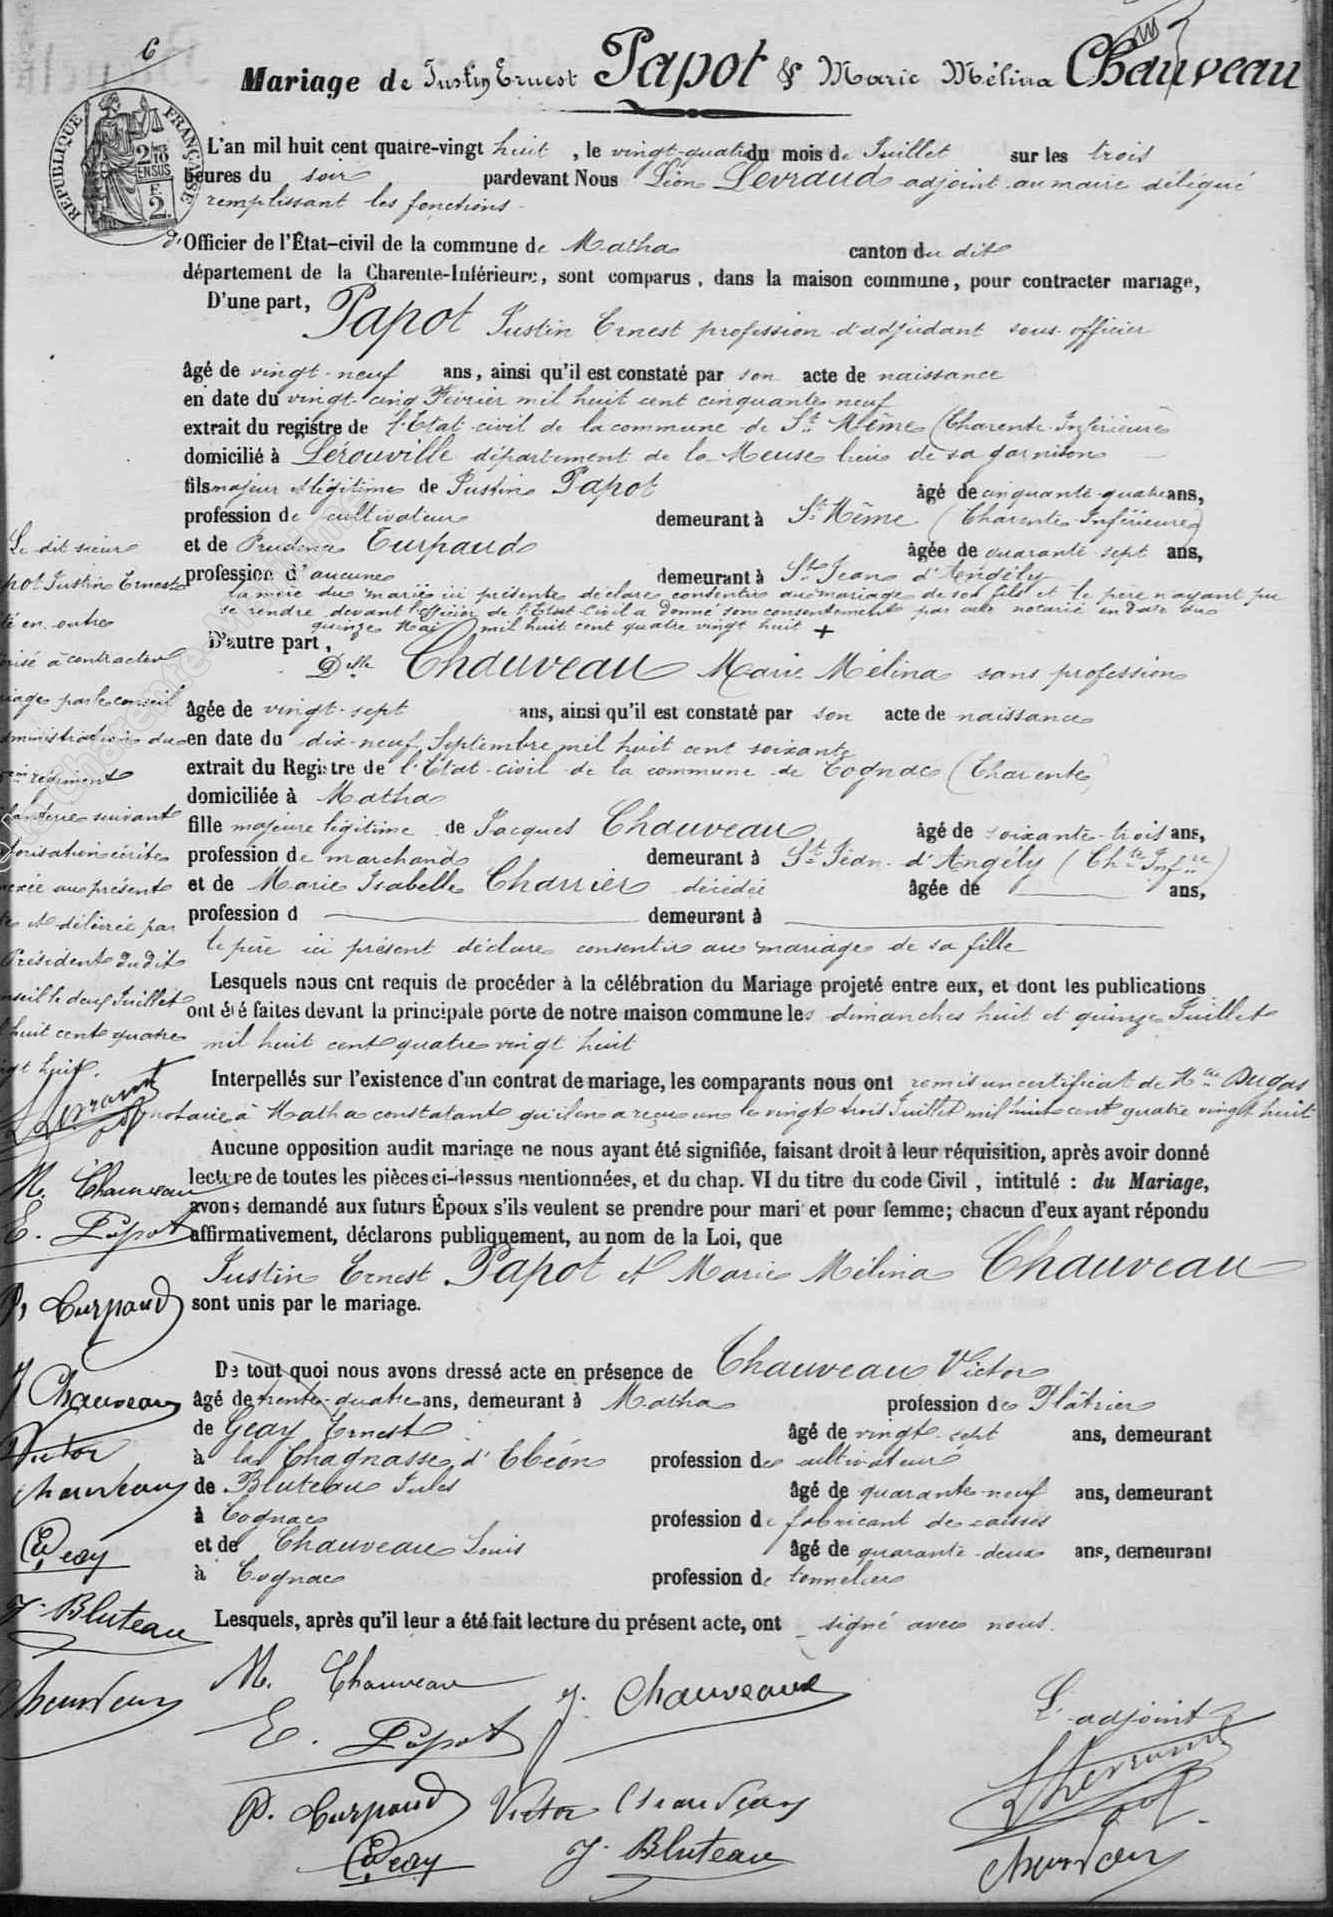 6
Mariage de Justin Ernest Papot & Marie Mélina Chauveau
RÉPUBLIQUE FRANÇAISE
2/10 EN SUS
F. 2
L'an mil huit cent quatre-vingt huit, le vingt-quatre du mois de Juillet sur les trois
heures du soir pardevant Nous Léon Levraud adjoint au maire délégué
remplissant les fonctions
d'Officier de l'État-civil de la commune de Matha canton du dit
département de la Charente-Inférieure, sont comparus, dans la maison commune, pour contracter mariage,
D'une part, Papot Justin Ernest profession d'adjudant sous-officier
âgé de vingt-neuf ans, ainsi qu'il est constaté par son acte de naissance
en date du vingt-cinq Février mil huit cent cinquante neuf
extrait du registre de l'Etat-civil de la commune de St Même (Charente-Inférieure
domicilié à Lérouville département de la Meuse lieu de sa garnison
fils majeur & légitime de Justin Papot âgé de cinquante-quatre ans,
profession de cultivateur demeurant à St Même (Charente-Inférieure)
et de Prudence Turpaud âgée de quarante-sept ans,
profession d'aucune demeurant à St Jean d'Angély
la mère du marié ici présente déclare consentir au mariage de son fils et le père n'ayant pu
se rendre devant l'officier de l'Etat-Civil a donné son consentement par acte notarié en date du
quinze Mai mil huit cent quatre vingt huit +
D'autre part,
Dlle Chauveau Marie Mélina sans profession
âgée de vingt-sept ans, ainsi qu'il est constaté par son acte de naissance
en date du dix-neuf Septembre mil huit cent soixante
extrait du Registre de l'Etat-civil de la commune de Cognac (Charente)
domiciliée à Matha
fille majeure légitime de Jacques Chauveau âgé de soixante-trois ans,
profession de marchand demeurant à St Jean d'Angély (Chte Infre)
et de Marie Isabelle Charrier décédée âgée de ans,
profession d demeurant à
le père ici présent déclare consentir au mariage de sa fille
Lesquels nous ont requis de procéder à la célébration du Mariage projeté entre eux, et dont les publications
ont été faites devant la principale porte de notre maison commune les dimanches huit et quinze Juillet
mil huit cent quatre vingt huit
Interpellés sur l'existence d'un contrat de mariage, les comparants nous ont remis un certificat de Me Dugas
notaire à Matha constatant qu'il en a reçu un le vingt trois Juillet mil huit cent quatre vingt huit
Aucune opposition audit mariage ne nous ayant été signifiée, faisant droit à leur réquisition, après avoir donné
lecture de toutes les pièces ci-dessus mentionnées, et du chap. VI du titre du code Civil, intitulé : du Mariage,
avons demandé aux futurs Époux s'ils veulent se prendre pour mari et pour femme; chacun d'eux ayant répondu
affirmativement, déclarons publiquement, au nom de la Loi, que
Justin Ernest Papot et Marie Mélina Chauveau
sont unis par le mariage.
De tout quoi nous avons dressé acte en présence de Chauveau Victor
âgé de trente-quatre ans, demeurant à Matha profession de Plâtrier
de Geay Ernest âgé de vingt-sept ans, demeurant
à la Chagnasse d'Ebéon profession de cultivateur
de Bluteau Jules âgé de quarante-neuf ans, demeurant
à Cognac profession de fabricant de caisses
et de Chauveau Louis âgé de quarante-deux ans, demeurant
à Cognac profession de tonnelier
Lesquels, après qu'il leur a été fait lecture du présent acte, ont signé avec nous.
M. Chauveau
J. Chauveau
E. Papot
L'adjoint
LLevraud
P. Turpaud
Victor Chauveau
EGeay
J. Bluteau
Chauveau
Le dit sieur
pot Justin Ernest
té en outre
orisé à contracter
riage par le conseil
dministration du
régiment
fanterie suivant
torisation écrite
nexée au présent
te et délivrée par
Président du dit
nseil le deux Juillet
huit cent quatre
ngt huit.
LLevraud
M. Chauveau
E. Papot
P. Turpaud
J Chauveau
Victor
Chauveau
EGeay
J. Bluteau
Chauveau